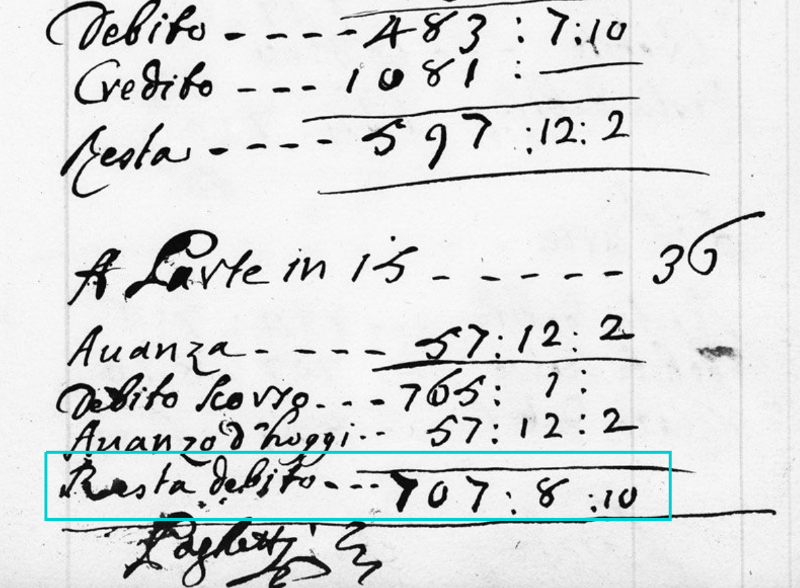 Debito - - - - 483 : 7:10
Credito - - - 1081 : ——
Resta - - - - 597 : 12: 2
A Parte in 15 - - - - - - 36
Auanza - - - - 57: 12: 2
Debito scorso - - - 765: 1 :
Auanzo d'hoggi - - 57: 12: 2
Resta debito - - - 707: 8 :10
Paghetti